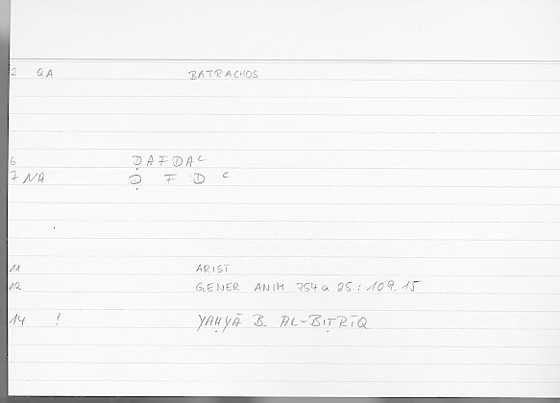 2 QA BATRACHOS
6 ḌAFDAᶜ
7 NA Ḍ F D ᶜ
11 ARIST
12 GENER ANIM 754 a 25 : 109.15
14 ! YAḤYĀ B. AL-BIṬRĪQ